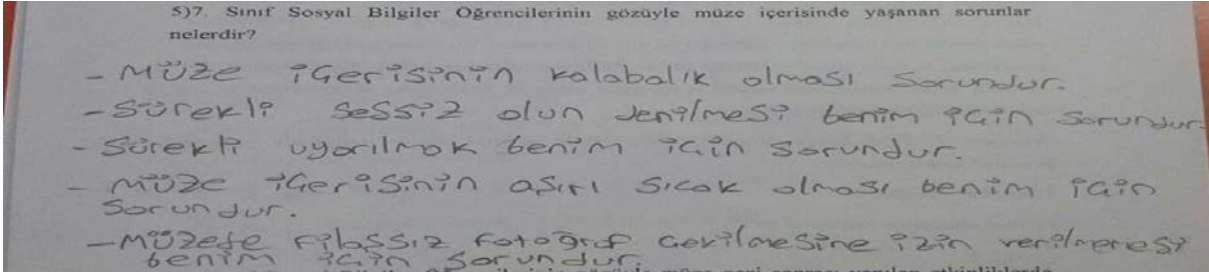 5)7. Sınıf Sosyal Bilgiler Öğrencilerinin gözüyle müze içerisinde yaşanan sorunlar
nelerdir?
- Müze içerisinin kalabalık olması sorundur.
- Sürekli sessiz olun denilmesi benim için sorundur
- Sürekli uyarılmak benim için sorundur.
- Müze içerisinin aşırı sıcak olması benim için
sorundur.
- Müzede filaşsız fotoğraf çekilmesine izin verilmemesi
benim için sorundur.